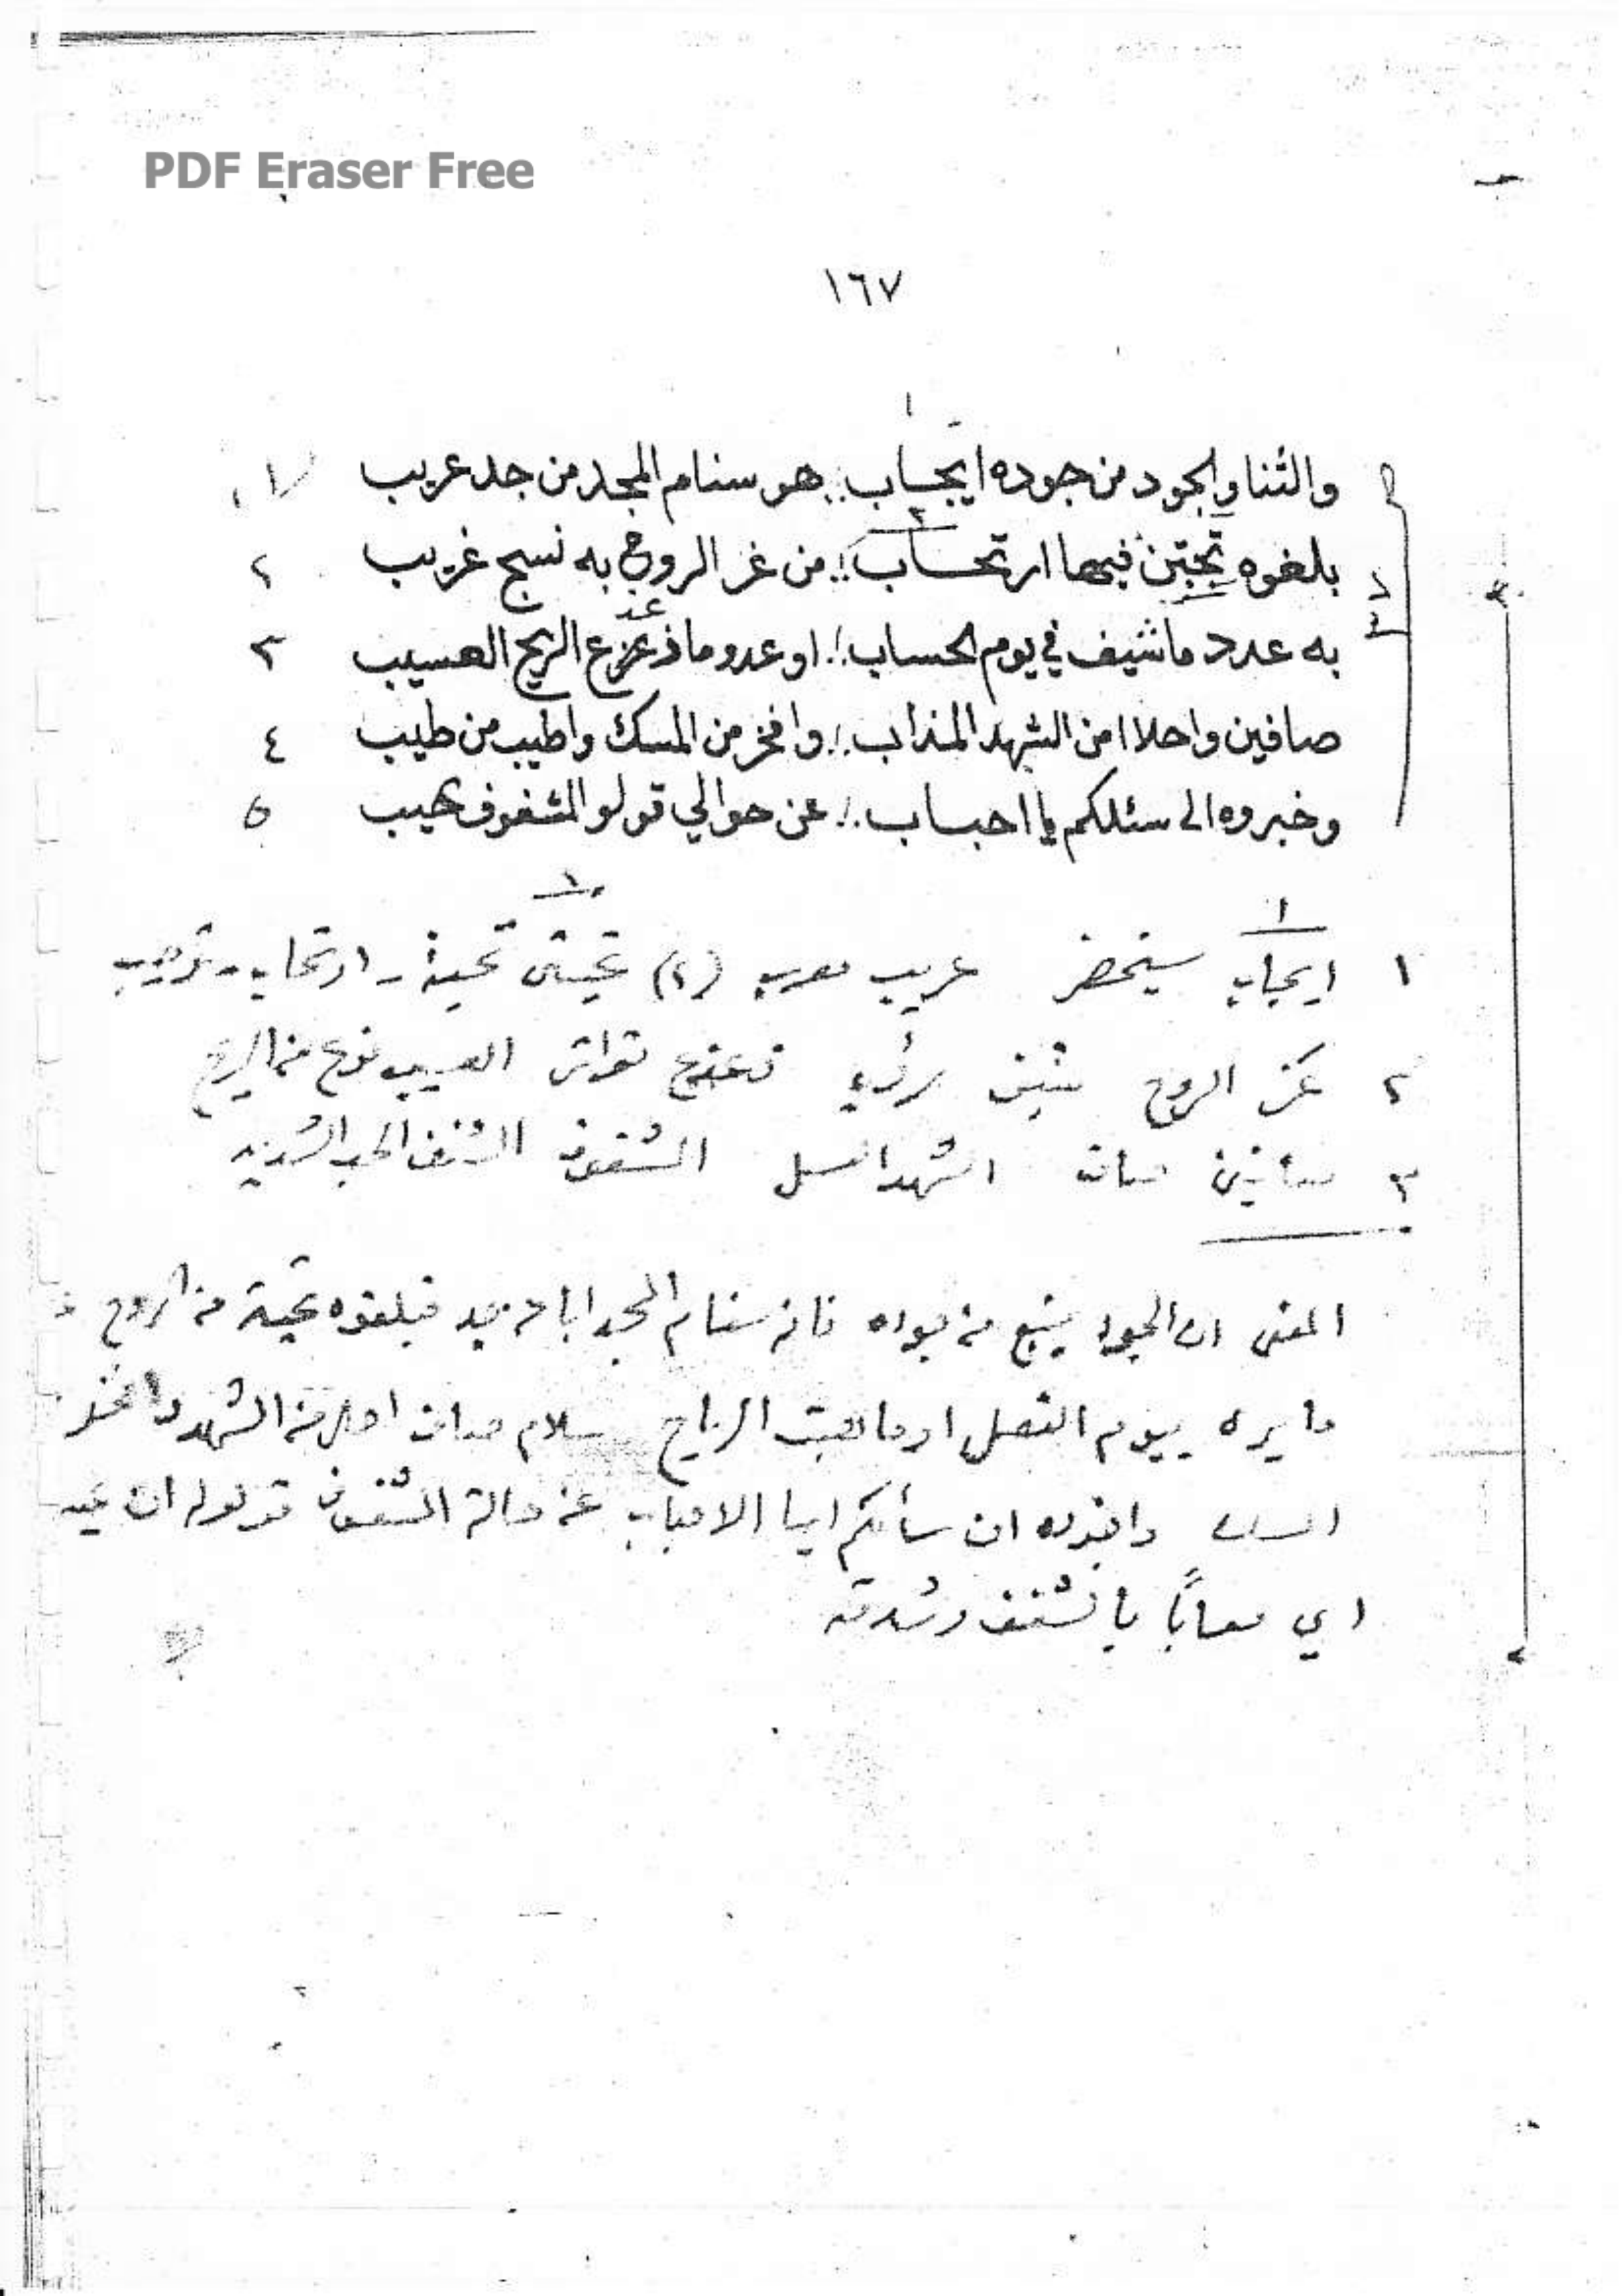 PDF Eraser Free
١٦٧
١
والثنا والجود من جوده ايجساب .. هو سنام المجد من جد عريب ١
بلغوه تجيتن فيها ارتحساب .. من غر الروح به نسج غريب ٢
به عدد ما شيف في يوم الحساب .. او عدد ما ذعزع الريح العسيب ٣
صافين واحلا من الشهد المذاب .. وافخر من المسك واطيب من طيب ٤
وخبروه الى سئلكم يا احباب .. عن حوالي قولو المشغوف عيب ٥
١ ايجاب سيحضر عريب معرب (٢) تحيتن تحية - ارتحاب - ترحيب
٢ عن الروح شيف رئي ذعذع العسيب نوع من الريح
٣ صافين صاف الشهد العسل المشغوف الشغف الحب الشديد
المعنى ان الجود ينبع من جوده فانه سنام المجد ابا عن جد فبلغوه تحية من الروح
ما يرى بيوم الفصل او ما هبت الرياح سلام صاف احلى من الشهد وافخر
المسك واخبروه ان سألكم ايها الاحباب عن حالة المشغوف قولوا له ان عيب
اي معابًا بالشغف وشدته